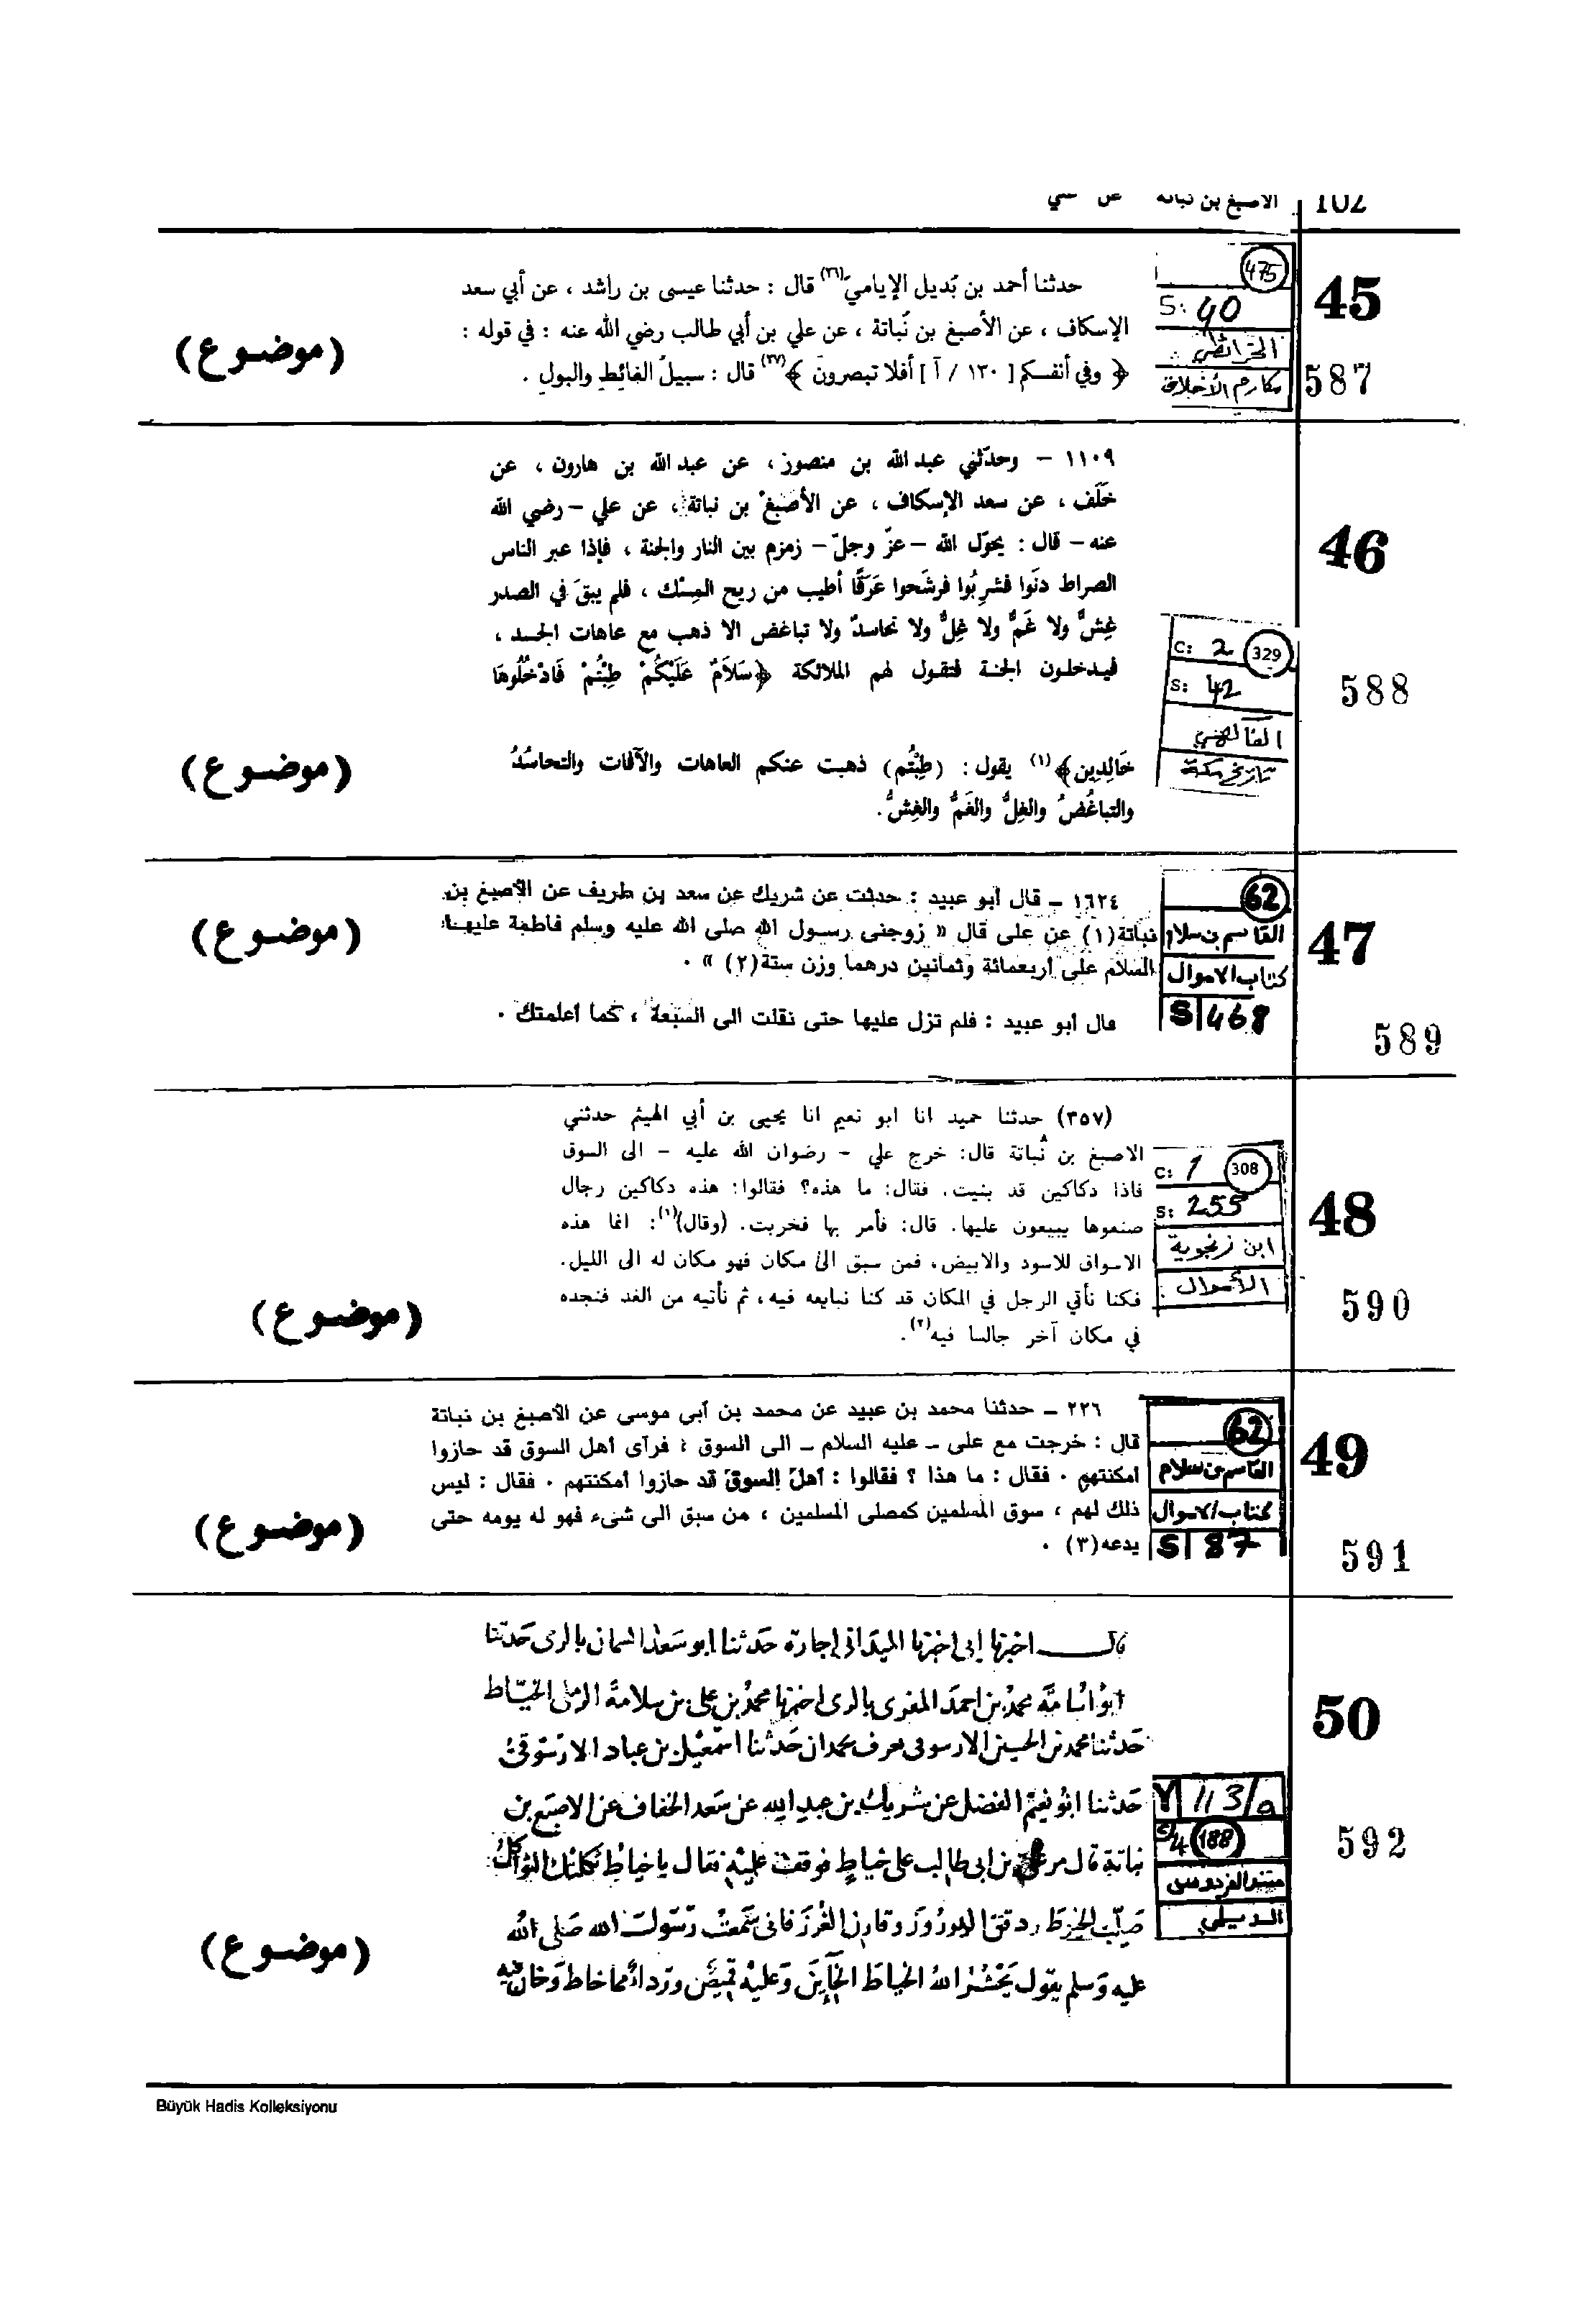 102
الاصبغ بن نباتة
45
587
475
S: 40
الخرائطي
مكارم الأخلاق
حدثنا أحمد بن بُديل الإيامي(٣٦) قال : حدثنا عيسى بن راشد ، عن أبي سعد
الإسكاف ، عن الأصبغ بن نُباتة ، عن علي بن أبي طالب رضي الله عنه : في قوله :
﴿ وفي أنفسكم [ ١٢٠ / آ ] أفلا تبصرون ﴾(٣٧) قال : سبيلُ الغائِطِ والبولِ .
(موضوع)
46
588
C: 2 329
S: 42
الفاكهي
تاريخ مكة
١١٠٩ – وحدّثني عبد الله بن منصور ، عن عبد الله بن هارون ، عن
خَلَف ، عن سعد الإسكاف ، عن الأصبغ بن نباتة ، عن علي – رضي الله
عنه – قال : يحوّل الله – عزّ وجلّ – زمزم بين النار والجنة ، فإذا عبر الناس
الصراط دنَوا فشربُوا فرشَحوا عَرَقًا أطيب من ريح المِسْك ، فلم يبقَ في الصدر
غِشٌّ ولا غَمٌّ ولا غِلٌّ ولا تحاسدٌ ولا تباغض الا ذهب مع عاهات الجسد ،
فيدخلون الجنة فتقول لهم الملائكة ﴿سَلَامٌ عَلَيْكُمْ طِبْتُمْ فَادْخُلُوهَا
خَالِدِين﴾(١) يقول : (طِبْتُم) ذهبت عنكم العاهات والآفات والتحاسُدُ
والتباغُضُ والغِلُّ والغَمُّ والغِشُّ.
(موضوع)
47
589
62
القاسم بن سلام
كتاب الاموال
S 468
١٦٢٤ ـ قال أبو عبيد : حدثت عن شريك عن سعد بن طريف عن الأصبغ بن
نباتة(١) عن على قال « زوجنى رسول الله صلى الله عليه وسلم فاطمة عليها
السلام على أربعمائة وثمانين درهما وزن ستة(٢) » ٠
قال أبو عبيد : فلم تزل عليها حتى نقلت الى السبعة ، كما أعلمتك ٠
(موضوع)
48
590
C: 1 308
S: 255
ابن زنجوية
الأموال
(٣٥٧) حدثنا حميد انا ابو نعيم انا يحيى بن أبي الهيثم حدثني
الاصبغ بن نُباتة قال: خرج علي - رضوان الله عليه - الى السوق
فاذا دكاكين قد بنيت. فقال: ما هذه؟ فقالوا: هذه دكاكين رجال
صنعوها يبيعون عليها. قال: فأمر بها فخربت. (وقال)(١): انما هذه
الاسواق للاسود والابيض، فمن سبق الى مكان فهو مكان له الى الليل.
فكنا نأتي الرجل في المكان قد كنا نبايعه فيه، ثم نأتيه من الغد فنجده
في مكان آخر جالسا فيه(٢).
(موضوع)
49
591
62
القاسم بن سلام
كتاب الاموال
S 87
٢٢٦ ـ حدثنا محمد بن عبيد عن محمد بن أبى موسى عن الأصبغ بن نباتة
قال : خرجت مع على ـ عليه السلام ـ الى السوق ، فرأى أهل السوق قد حازوا
أمكنتهم ٠ فقال : ما هذا ؟ فقالوا : أهل السوق قد حازوا أمكنتهم ٠ فقال : ليس
ذلك لهم ، سوق المسلمين كمصلى المسلمين ، من سبق الى شىء فهو له يومه حتى
يدعه(٣) ٠
(موضوع)
50
592
Y 113/a
S/4 188
مسند الفردوس
الديلمي
قال اخبرنا ابي اخبرنا الميداني اجازة حدثنا ابو سعد السمان بالري حدثنا
ابو اسامة محمد بن احمد المقري بالري اخبرنا محمد بن علي بن سلامة الرملي الخياط
حدثنا محمد بن الحسين الارسوفي يعرف بحمدان حدثنا اسمعيل بن عباد الارسوفي
حدثنا ابو نعيم الفضل عن شريك بن عبد الله عن سعد الخفاف عن الاصبغ بن
نباتة قال مر علي بن ابي طالب على خياط فوقف عليه فقال يا خياط ثكلتك الثواكل
صلب الخيط ودقق الدروز وقارب الغرز فاني سمعت رسول الله صلى الله
عليه وسلم يقول يحشر الله الخياط الخاين وعليه قميص ورداء مما خاط وخان فيه
(موضوع)
Büyük Hadis Kolleksiyonu